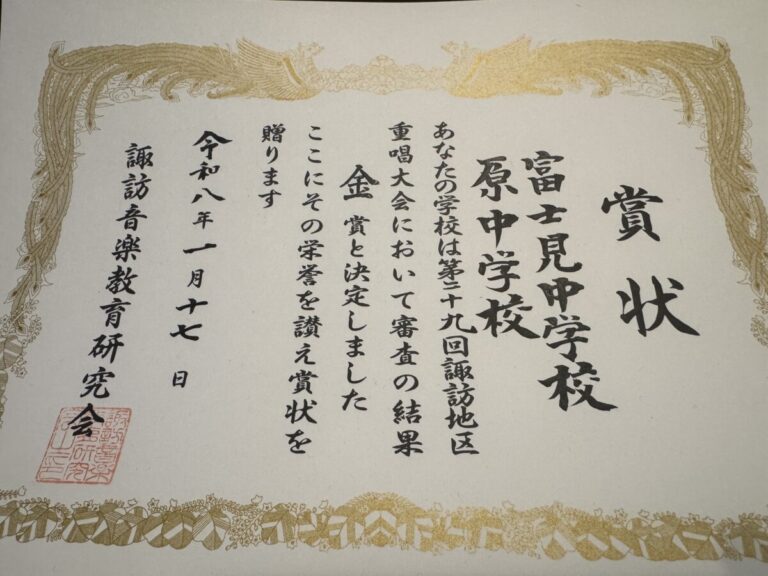 賞状
富士見中学校
原中学校
あなたの学校は第二十九回諏訪地区
重唱大会において審査の結果
金賞と決定しました
ここにその栄誉を讃え賞状を
贈ります
令和八年一月十七日
諏訪音楽教育研究会